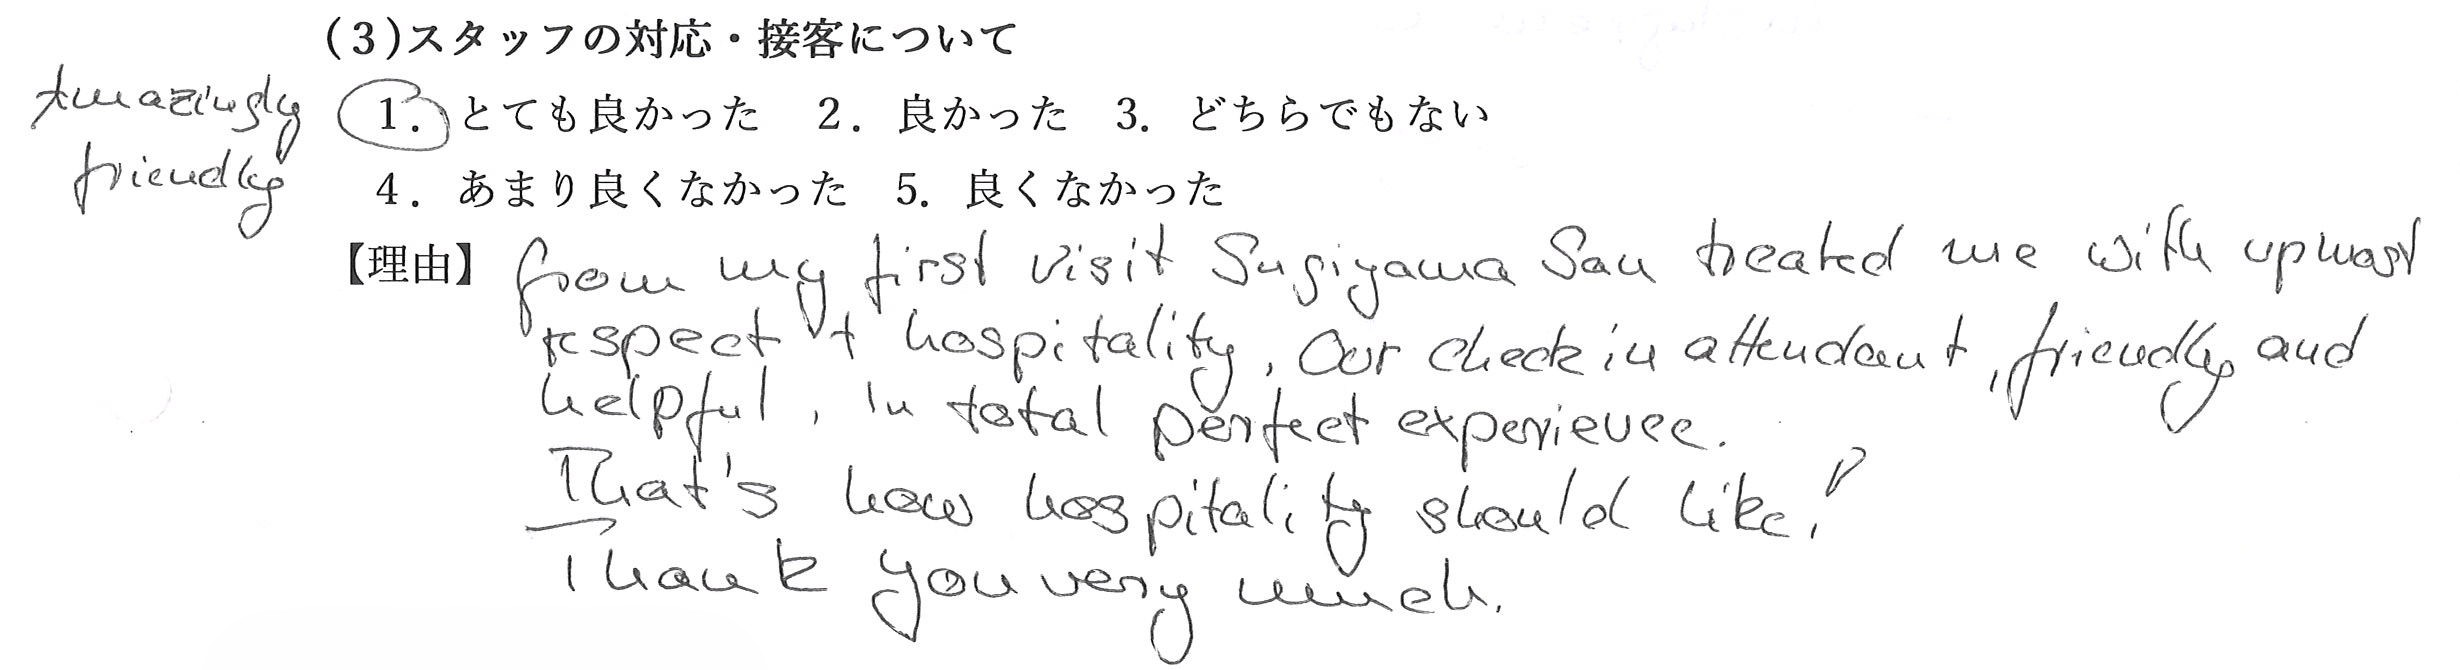 (3)スタッフの対応・接客について
Amazingly
friendly
1. とても良かった 2. 良かった 3. どちらでもない
4. あまり良くなかった 5. 良くなかった
【理由】 from my first visit Sugiyama San treated me with upmost
respect + hospitality, Our check in attendant, friendly and
helpful, in total perfect experience.
That's how hospitality should like!
Thank you very much.